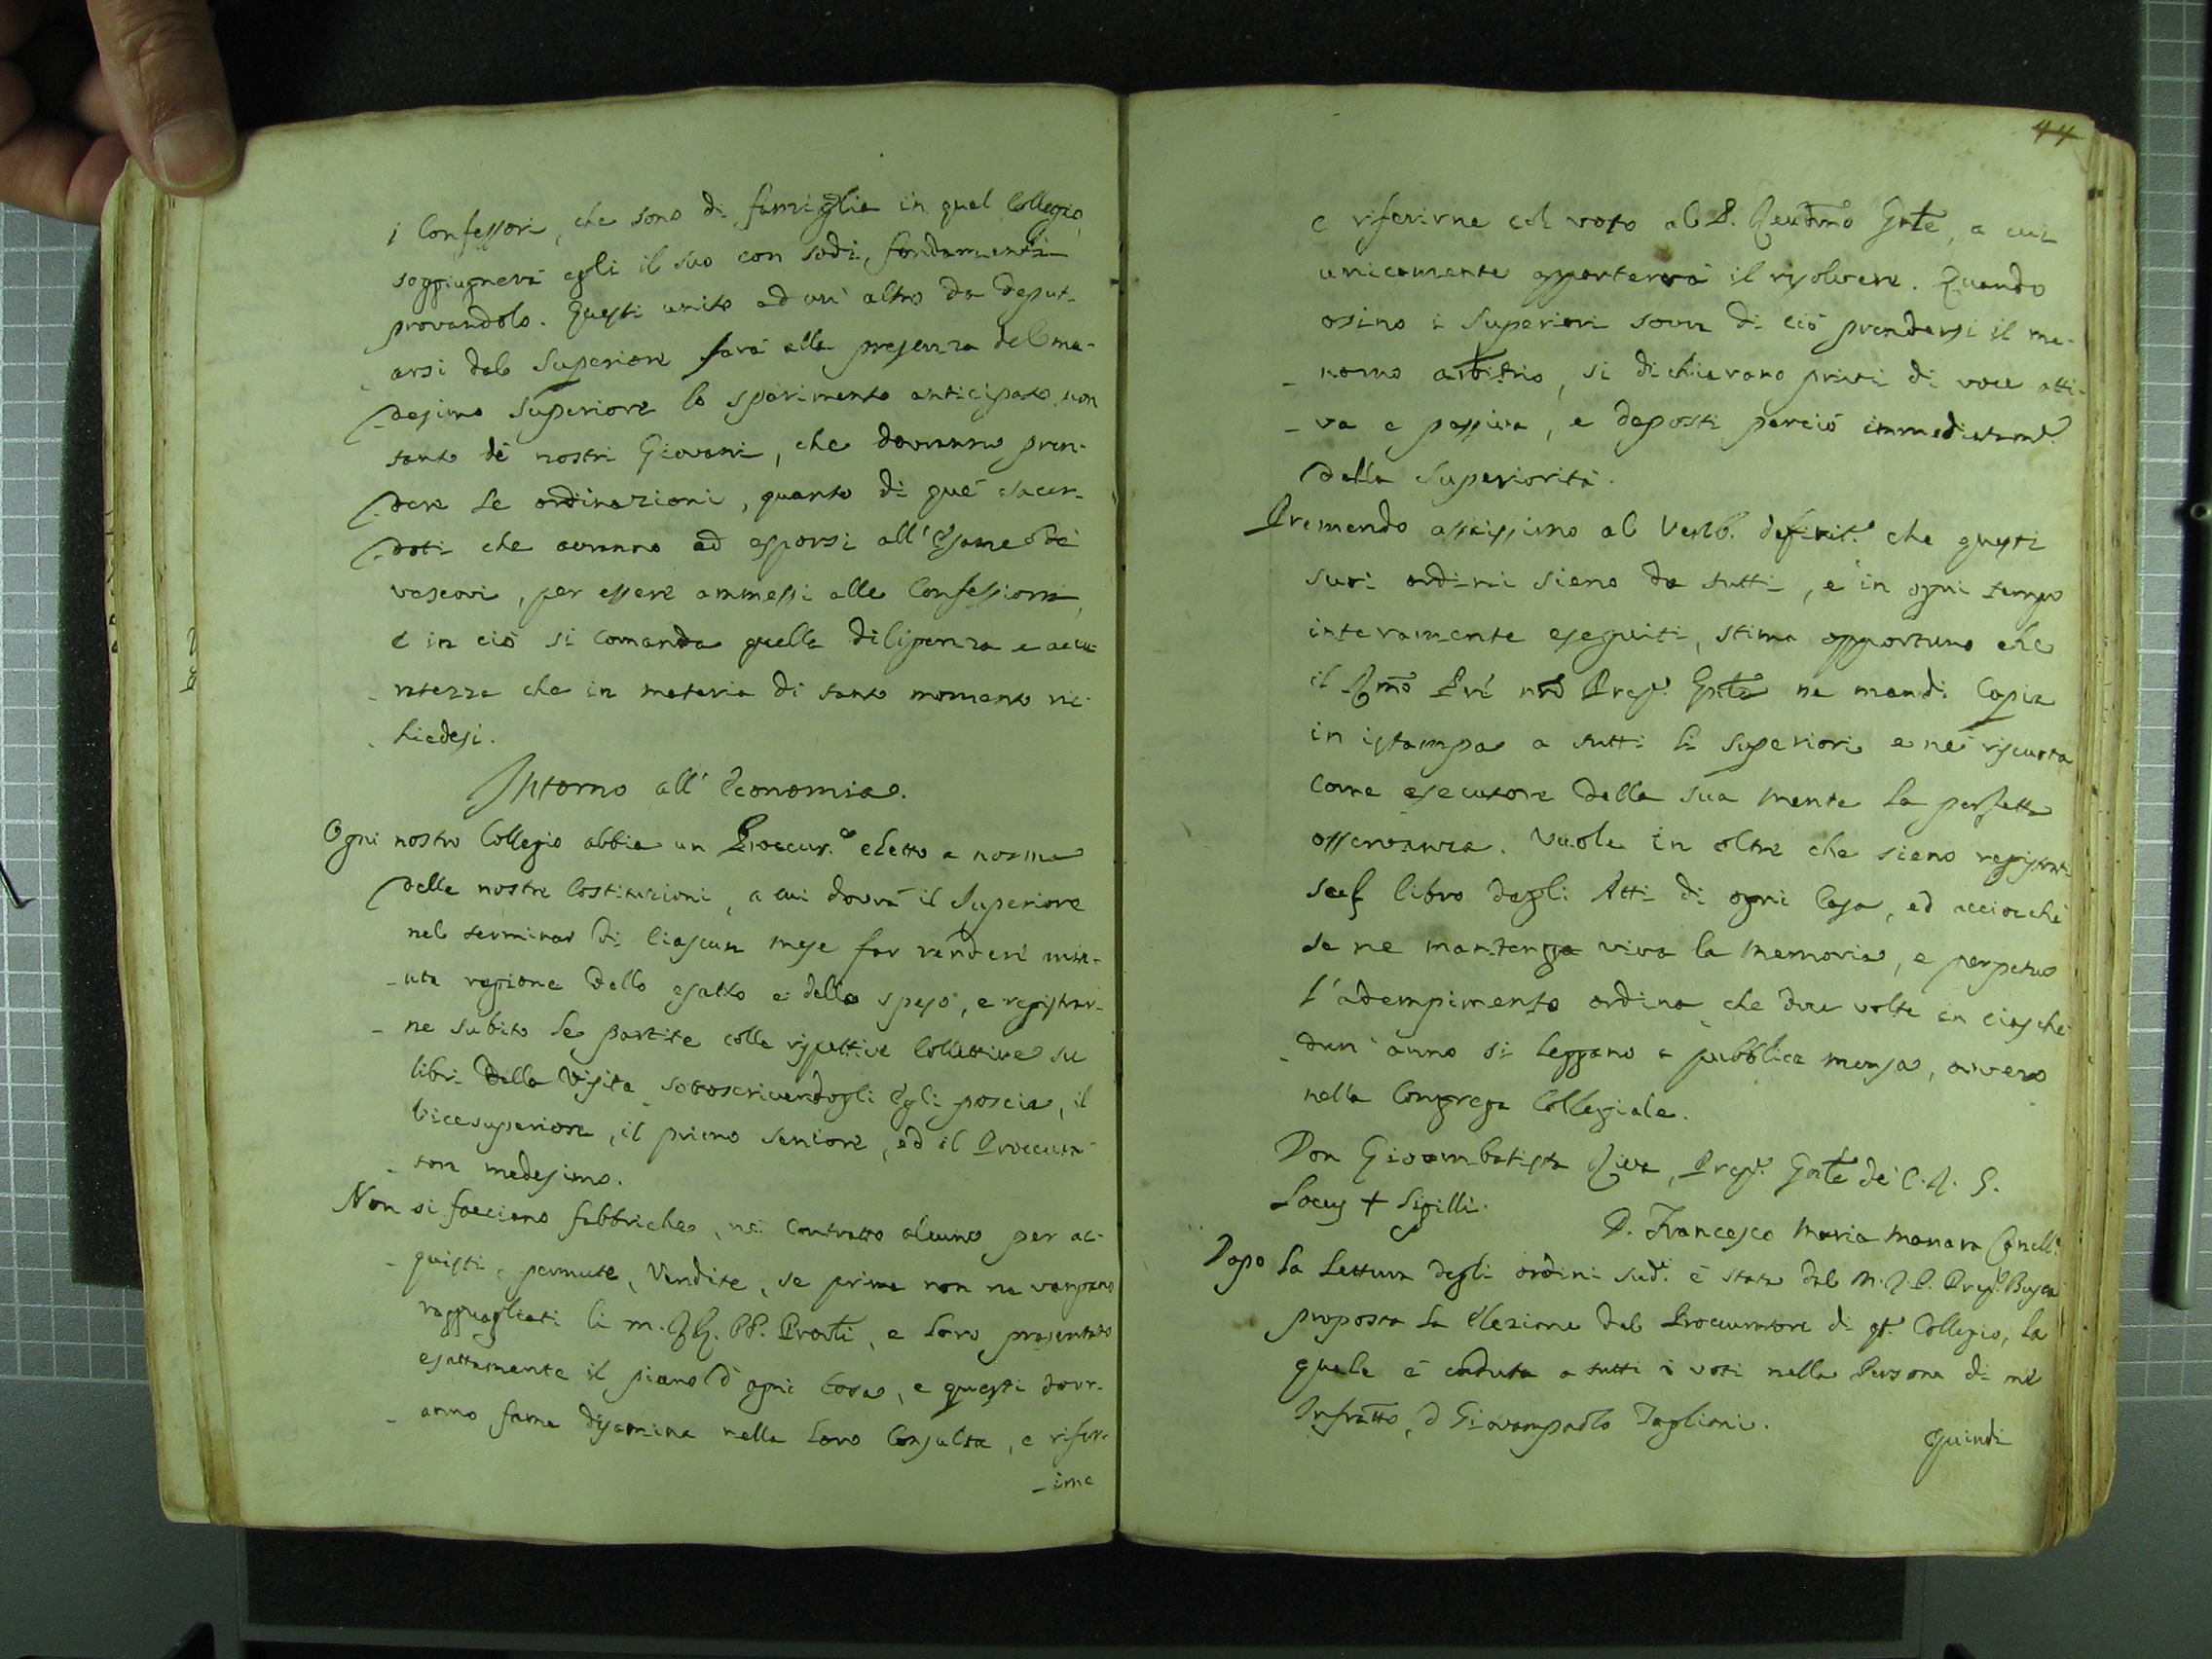 i Confessori, che sono di famiglia in quel Collegio,
soggiugnerà egli il suo con sodi fondamenti
provandolo. Questi unito ad un' altro da deput-
arsi dal Superiore farà alla presenza del me-
-desimo Superiore lo sperimento anticipato non
tanto de' nostri Giovani, che dovranno pren-
-dere le ordinazioni, quanto di que' sacer-
-doti che avranno ad esporsi all' Esame de'
vescovi, per essere ammessi alle Confessioni,
e in ciò si comanda quella diligenza e accu-
-ratezza che in materia di tanto momento ric-
-hiedesi.
Intorno all' Economia.
Ogni nostro Collegio abbia un Proccur.e eletto a norma
delle nostre Costituzioni, a cui dovrà il Superiore
nel terminar di ciascun mese far rendere min-
-uta ragione dello esatto e dello speso, e registrar-
-ne subito le partite colle rispettive Collettive su
libri della Visita sottoscrivendogli Egli poscia, il
Vicesuperiore, il primo Seniore, ed il Proccura-
-tore medesimo.
Non si facciano fabbriche, nè contratto alcuno per ac-
-quisti, permute, Vendite, se prima non ne vengano
ragguagliati li M. RR. PP. Prov̄li, e loro presentato
esattamente il piano d' ogni cosa, e questi dovr-
-anno farne disamina nella loro Consulta, e rifer-
-irne
44
e riferirne col voto al P. Reud̄mo Gn̄le, a cui
unicamente apparterrà il risolvere. Quando
osino i Superiori sovra di ciò prendersi il me-
-nomo arbitrio, si dichiarano privi di voce atti-
-va e passiva, e deposti perciò immediatam.e
dalla Superiorità.
Premendo assaissimo al Ven. definit.o che questi
suoi ordini sieno da tutti, e in ogni tempo
interamente eseguiti, stima opportuno che
il Rm̄o Pre nr̄o Prep.o Gn̄le ne mandi Copia
in istampa a tutti li Superiori e ne riscuota
come esecutore della sua mente la perfetta
osservanza. Vuole in oltre che sieno registrati
libro degli Atti di ogni Casa, ed acciocchè
se ne mantenga viva la memoria, e perpetuo
l'adempimento ordina, che due volte in ciasche-
-dun' anno si leggano a pubblica mensa, ovvero
nella Congrega Collegiale.
Don Giovambatista Riva, Prep.o Gn̄le de' C. R. S.
Locus + Sigilli.
D. Francesco Maria Manara Cancell.e
Dopo la Lettura degli ordini sud.i è stata dal M. R. P. Prep.o
proposta la Elezione del Proccuratore di q.to Collegio, la
quale è caduta a tutti i voti nella Persona di me
Infratto, D Giovampaolo Taglioni.
Quindi